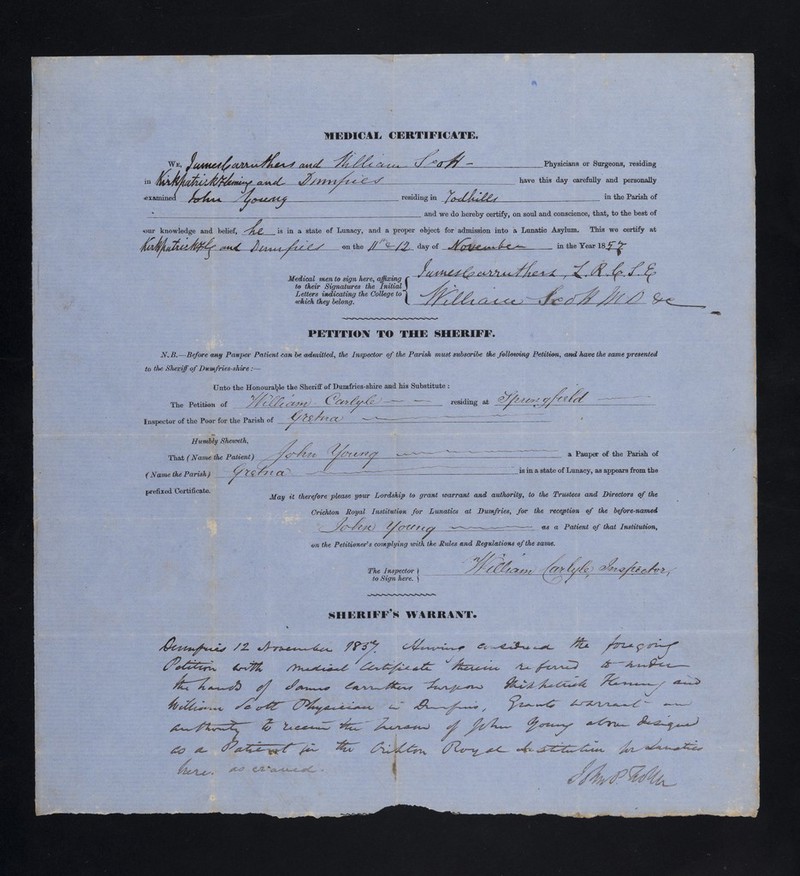 MEDICAL CERTIFICATE.
WE, James Carruthers and William Scott - Physicians or Surgeons, residing
in Kirkpatrick Fleming and Dumfries have this day carefully and personally
examined John Young residing in Todhills in the Parish of
and we do hereby certify, on soul and conscience, that, to the best of
our knowledge and belief, he is in a state of Lunacy, and a proper object for admission into a Lunatic Asylum. This we certify at
Kirkpatrick Flg and Dumfries on the 11 & 12 day of November in the Year 1857
Medical men to sign here, affixing
to their Signatures the Initial
Letters indicating the College to
which they belong.
James Carruthers, L.R.C.S.E
William Scott M D &c
PETITION TO THE SHERIFF.
N.B.—Before any Pauper Patient can be admitted, the Inspector of the Parish must subscribe the following Petition, and have the same presented
to the Sheriff of Dumfries-shire:—
Unto the Honourable the Sheriff of Dumfries-shire and his Substitute:
The Petition of William Carlyle residing at Springfield
Inspector of the Poor for the Parish of Gretna
Humbly Sheweth,
That (Name the Patient) John Young a Pauper of the Parish of
(Name the Parish) Gretna is in a state of Lunacy, as appears from the
prefixed Certificate.
May it therefore please your Lordship to grant warrant and authority, to the Trustees and Directors of the
Crichton Royal Institution for Lunatics at Dumfries, for the reception of the before-named
John Young as a Patient of that Institution,
on the Petitioner's complying with the Rules and Regulations of the same.
The Inspector
to Sign here.
William Carlyle, Inspector,
SHERIFF'S WARRANT.
Dumfries 12 November 1857. Having considered the foregoing
Petition with medical Certificate therein referred to under
the hands of James Carruthers Surgeon Kirkpatrick Fleming and
William Scott Physician in Dumfries, Grants warrant and
authority to receive the person of John Young above designed
as a Patient in the Crichton Royal Institution for Lunatics
here. as craved.
John P.